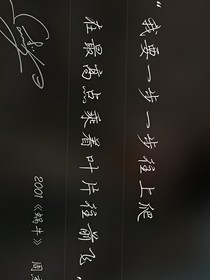 “我要一步一步往上爬
在最高点乘着叶片往前飞，
2001《蜗牛》 周